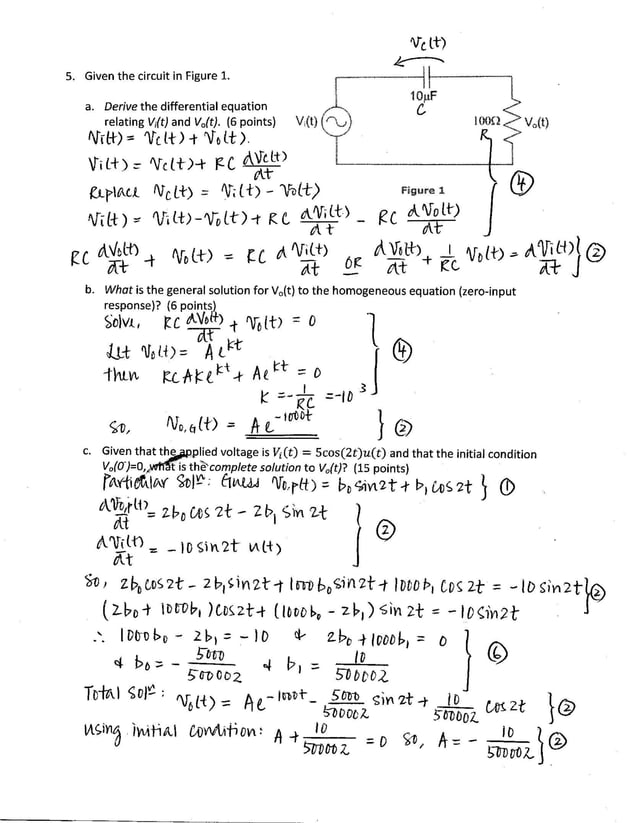 Vc(t)
5. Given the circuit in Figure 1.
10μF
C
a. Derive the differential equation
relating Vi(t) and Vo(t). (6 points)
Vi(t)
100Ω
R
Vo(t)
Vi(t) = Vc(t) + Vo(t).
Vi(t) = Vc(t) + RC dVc(t)/dt
Replace Vc(t) = Vi(t) - Vo(t)
Figure 1
④
Vi(t) = Vi(t) - Vo(t) + RC dVi(t)/dt - RC dVo(t)/dt
RC dVo(t)/dt + Vo(t) = RC dVi(t)/dt OR dVo(t)/dt + 1/RC Vo(t) = dVi(t)/dt } ②
b. What is the general solution for Vo(t) to the homogeneous equation (zero-input
response)? (6 points)
Solve, RC dVo(t)/dt + Vo(t) = 0
Let Vo(t) = Ae^kt
then RCAke^kt + Ae^kt = 0
④
K = - 1/RC = -10^3
So, Vo,G(t) = Ae^-1000t } ②
c. Given that the applied voltage is Vi(t) = 5cos(2t)u(t) and that the initial condition
Vo(0-)=0, what is the complete solution to Vo(t)? (15 points)
Particular Solⁿ: Guess Vo,p(t) = b0 sin2t + b1 cos2t } ①
dVo,p(t)/dt = 2b0 cos 2t - 2b1 sin 2t
②
dVi(t)/dt = -10 sin2t u(t)
So, 2b0 cos2t - 2b1 sin2t + 1000b0 sin2t + 1000b1 cos 2t = -10 sin2t } ②
(2b0 + 1000b1)cos2t + (1000b0 - 2b1) sin 2t = -10 sin2t
∴ 1000b0 - 2b1 = -10 & 2b0 + 1000b1 = 0
⑥
& b0 = - 5000/500002 & b1 = 10/500002
Total Solⁿ: Vo(t) = Ae^-1000t - 5000/500002 sin 2t + 10/500002 cos 2t } ②
Using initial condition: A + 10/500002 = 0 So, A = - 10/500002 } ②